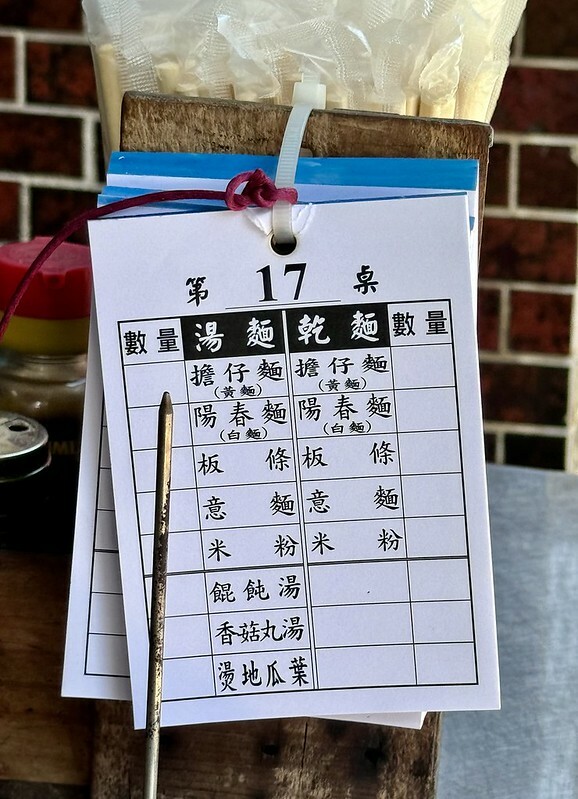 第 17 桌
數量 湯麵 乾麵 數量
擔仔麵 擔仔麵
(黃麵) (黃麵)
陽春麵 陽春麵
(白麵) (白麵)
板條 板條
意麵 意麵
米粉 米粉
餛飩湯
香菇丸湯
燙地瓜葉